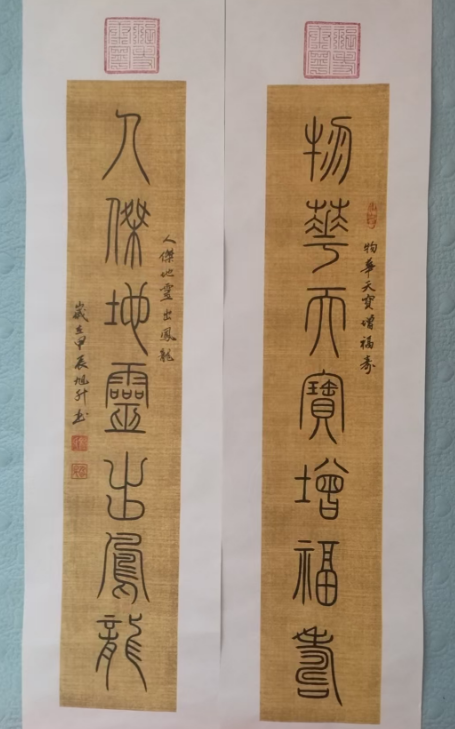 物華天寶增福壽
物華天寶增福壽
人傑地靈出鳳龍
人傑地靈出鳳龍
歲在甲辰旭升書